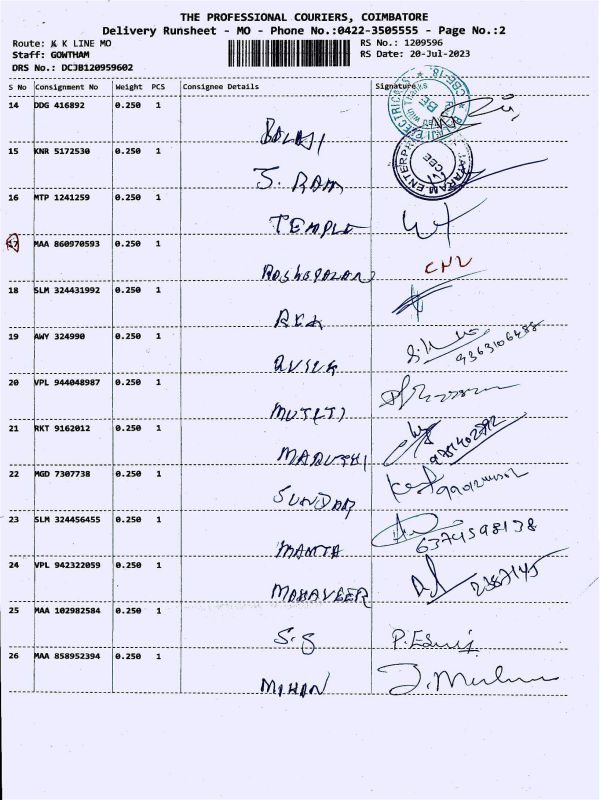 THE PROFESSIONAL COURIERS, COIMBATORE
Delivery Runsheet - MO - Phone No.:0422-3505555 - Page No.:2
Route: K K LINE MO
RS No.: 1209596
Staff: GOWTHAM
RS Date: 20-Jul-2023
DRS No.: DCJB120959602
S No Consignment No Weight PCS Consignee Details Signature
14 DDG 416892 0.250 1
BALAJI
15 KNR 5172530 0.250 1
S. RAM
16 MTP 1241259 0.250 1
TEMPLE
17 MAA 860970593 0.250 1
18 SLM 324431992 0.250 1
19 AWY 324990 0.250 1
9363106488
20 VPL 944048987 0.250 1
21 RKT 9162012 0.250 1
MARUTHI
22 MGD 7307738 0.250 1
SUNDAR
23 SLM 324456455 0.250 1
MAMTA 6374598138
24 VPL 942322059 0.250 1
MAHAVEER 2387145
25 MAA 102982584 0.250 1
S.S
26 MAA 858952394 0.250 1
MOHAN